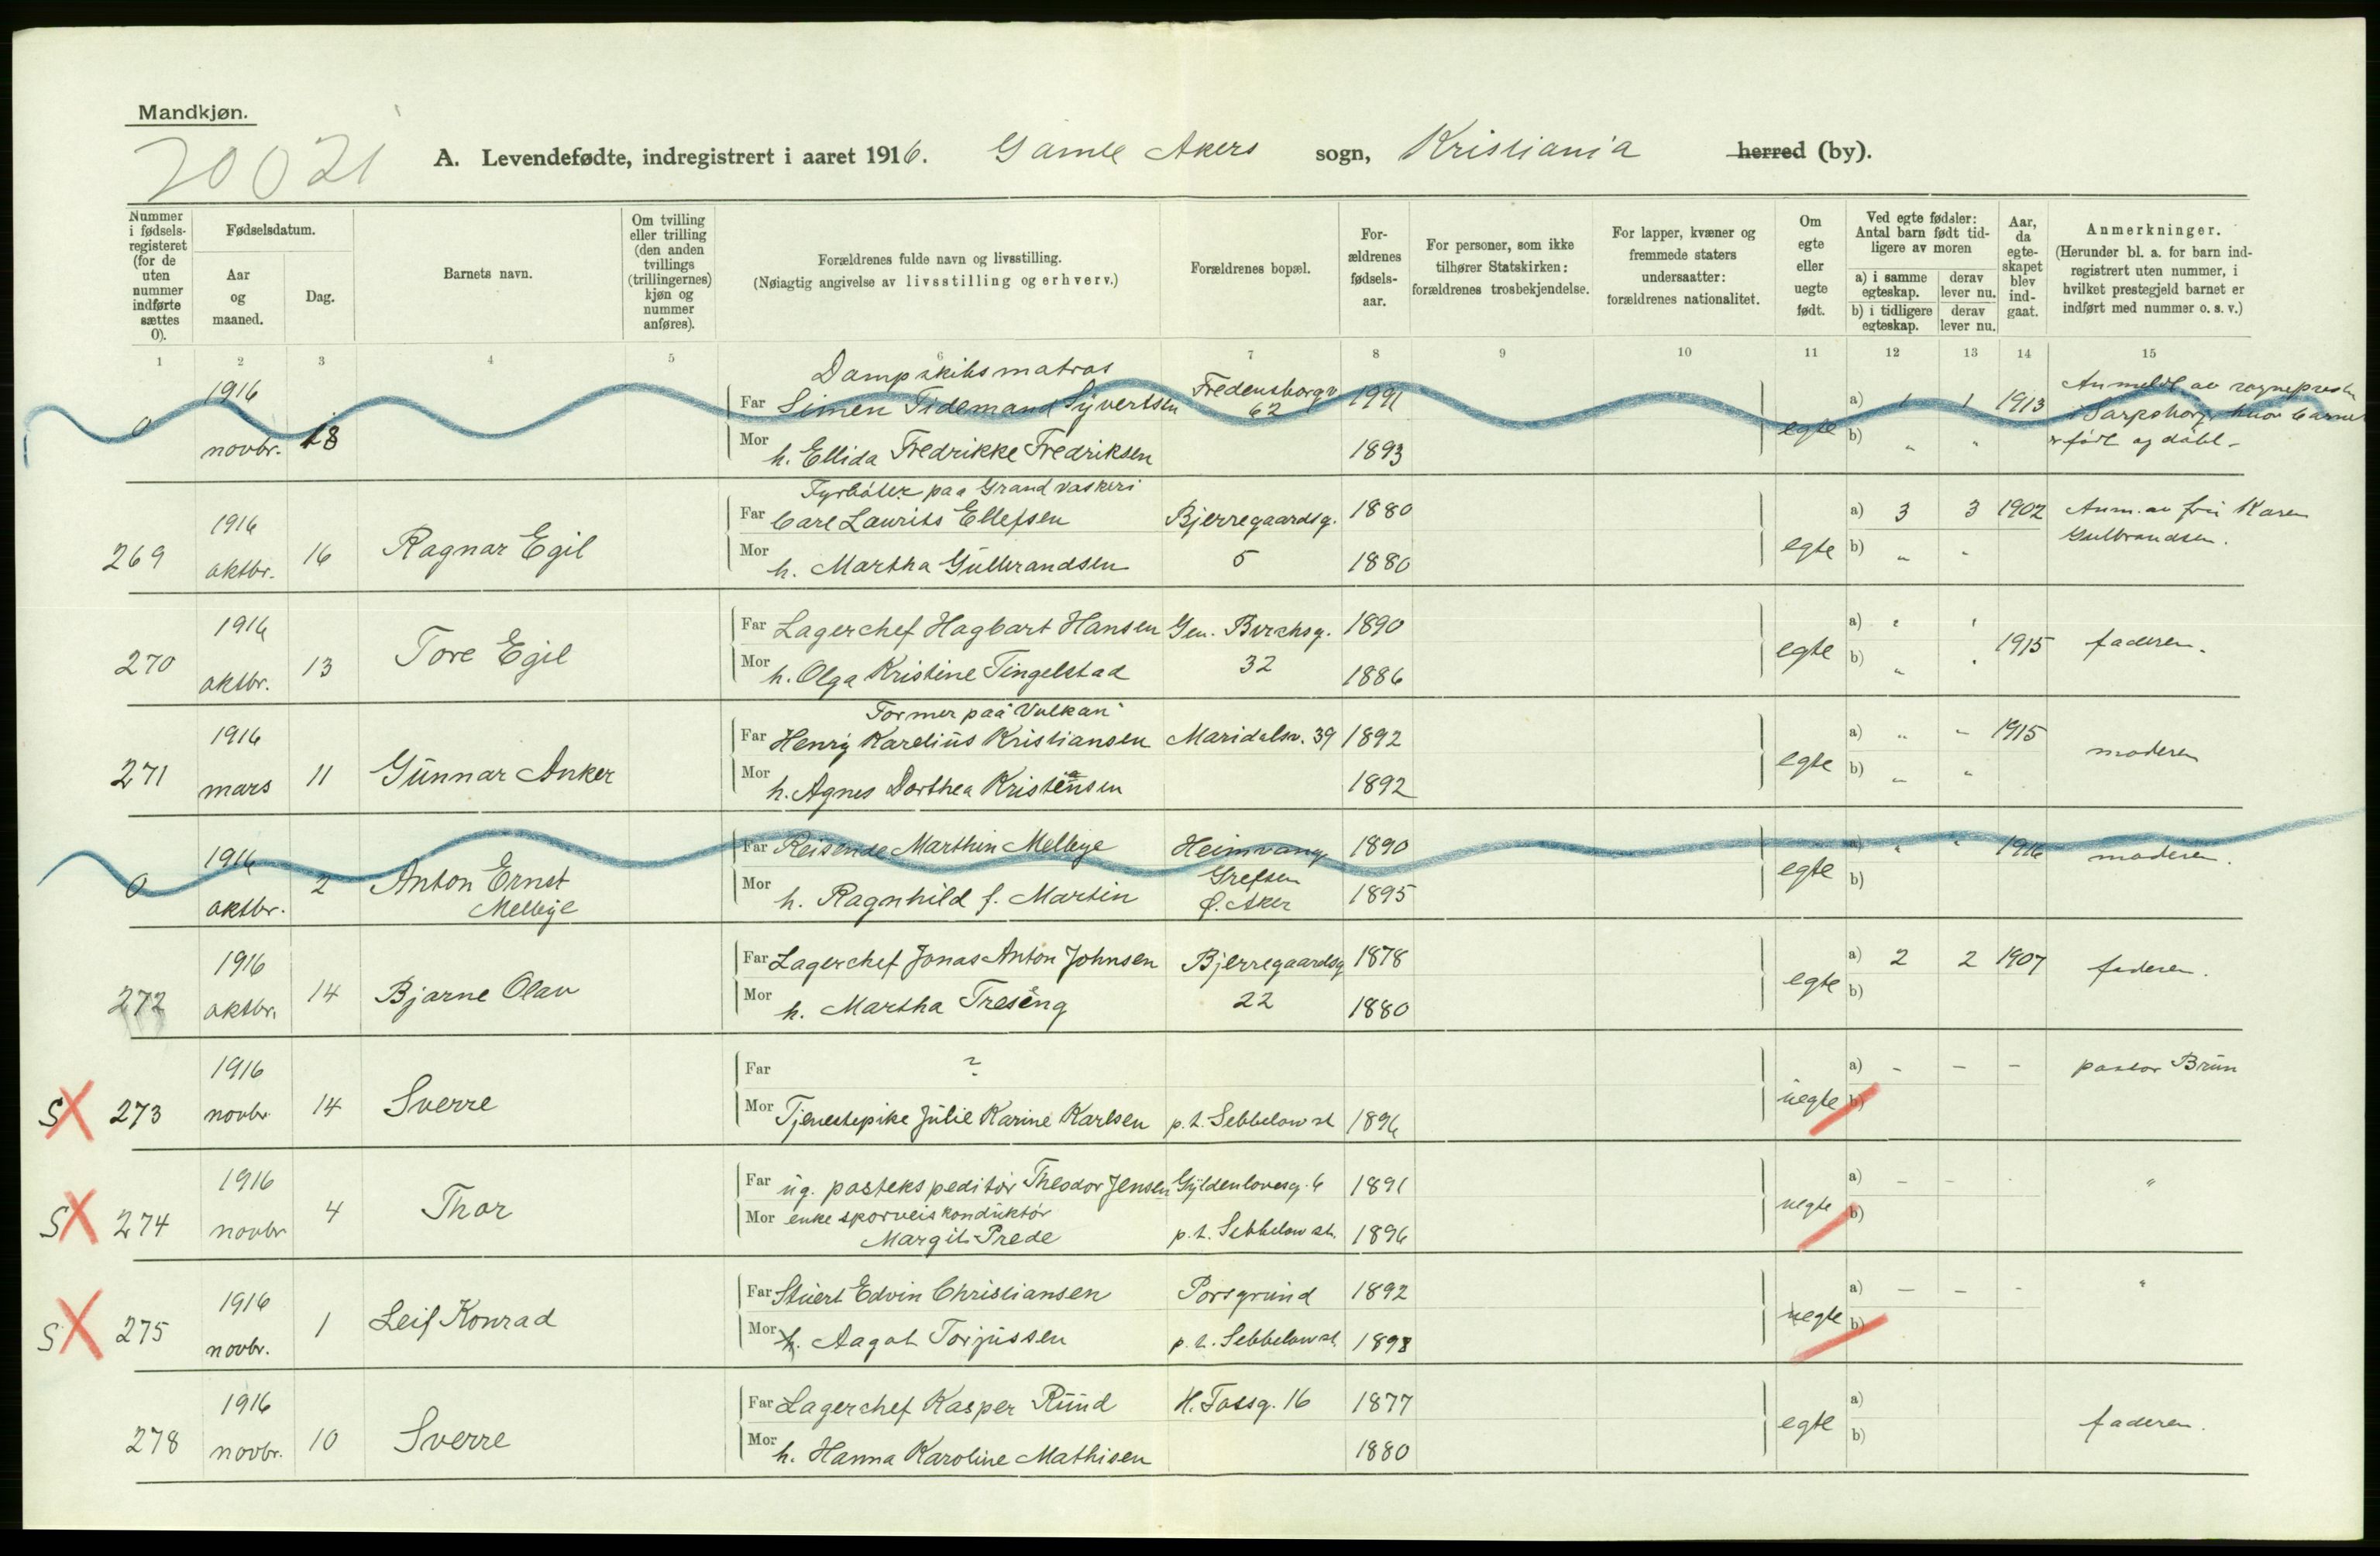 Mandkjøn.
20021
A. Levendefødte, indregistrert i aaret 1916. Gamle Akers sogn, Kristiania herred (by).
Nummer i fødsels-registeret (for de uten nummer indførte sættes 0).
Fødselsdatum.
Aar og maaned.
Dag.
Barnets navn.
Om tvilling eller trilling (den anden tvillings (trillingernes) kjøn og nummer anføres).
Forældrenes fulde navn og livsstilling.
(Nøiagtig angivelse av livsstilling og erhverv.)
Forældrenes bopæl.
For-ældrenes fødsels-aar.
For personer, som ikke tilhører Statskirken: forældrenes trosbekjendelse.
For lapper, kvæner og fremmede staters undersaatter: forældrenes nationalitet.
Om egte eller uegte født.
Ved egte fødsler: Antal barn født tid-ligere av moren
a) i samme egteskap. derav lever nu.
b) i tidligere egteskap. derav lever nu.
Aar, da egte-skapet blev ind-gaat.
Anmerkninger.
(Herunder bl. a. for barn ind-registrert uten nummer, i hvilket prestegjeld barnet er indført med nummer o. s. v.)
1 2 3 4 5 6 7 8 9 10 11 12 13 14 15
Dampskibsmatros
0 1916 Far Simen Tidemand Syvertsen Fredensborgv 62 1991 a) 1 1 1913 Anmeldt av sogneprest
i Sarpsborg hvor barnet
novbr. 18 Mor h. Ellida Fredrikke Fredriksen 1893 egte b) " " er født og døbt -
Fyrbøter paa Grand vaskeri
1916 Far Carl Laurits Ellefsen Bjerregaardsg. 1880 a) 3 3 1902 Anm. av fru Karen
269 oktbr. 16 Ragnar Egil Mor h. Martha Gulbrandsen 5 1880 egte b) " " Gulbrandsen.
1916 Far Lagerchef Hagbart Hansen Gen. Birchsg. 1890 a) " "
270 oktbr. 13 Tore Egil Mor h. Olga Kristine Tingelstad 32 1886 egte b) " " 1915 faderen.
Former paa "Vulkan"
1916 Far Henry Karelius Kristiansen Maridalsv. 39 1892 a) " " 1915
271 mars 11 Gunnar Anker Mor h. Agnes Dorthea Kristiansen 1892 egte b) " " moderen
1916 Far Reisende Marthin Melbye Heimvang 1890 a) " " 1916 moderen.
0 oktbr. 2 Anton Ernst Mor h. Ragnhild f. Martin Grefsen 1895 egte b)
Melbye Ø. Aker
1916 Far Lagerchef Jonas Anton Johnsen Bjerregaardsg 1878 a) 2 2 1907 faderen.
272 oktbr. 14 Bjarne Olav Mor h. Martha Treseng 22 1880 egte b)
1916 Far ? a) - - - pastor Brun
S 273 novbr. 14 Sverre Mor Tjenestepike Julie Karine Karlsen p.t. Sebbelow st 1896 uegte b)
1916 Far ug. postekspeditør Theodor Jensen Gyldenløvesg. 6 1891 a) - - - "
S 274 novbr 4 Thor Mor enke sporveiskonduktør
Margit Prede p.t. Sebbelow st. 1896 uegte b)
1916 Far Stuert Edvin Christiansen Porsgrund 1892 a) - - - "
S 275 novbr. 1 Leif Konrad Mor h. Aagot Torjussen p.t. Sebbelow st. 1898 uegte b)
1916 Far Lagerchef Kasper Ruud H. Tossg. 16 1877 a)
278 novbr. 10 Sverre Mor h. Hanna Karoline Mathisen 1880 egte b) faderen.